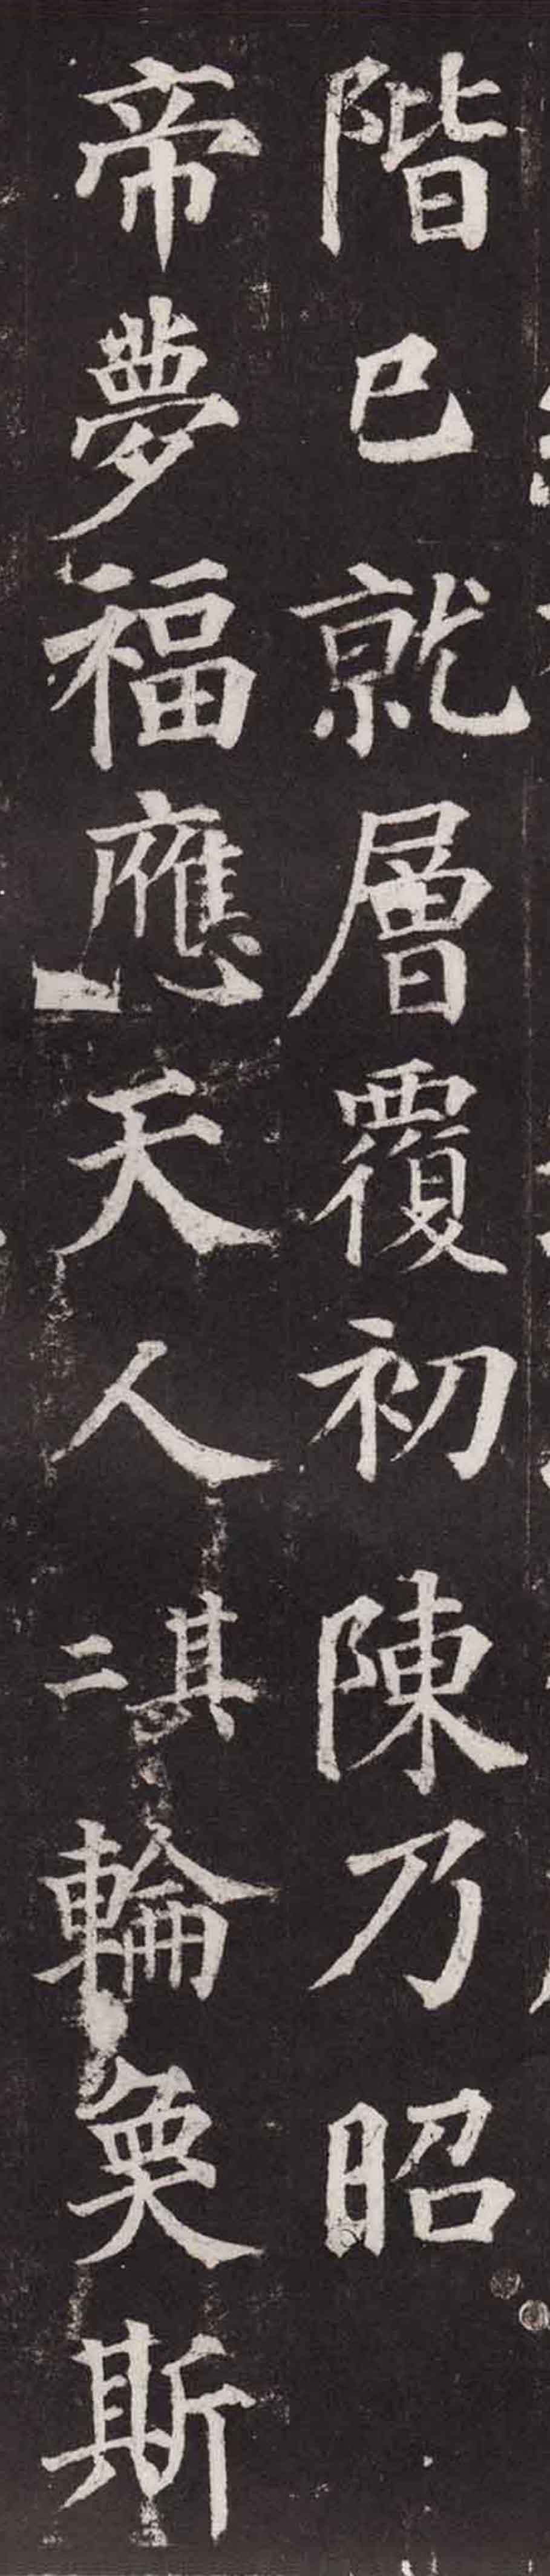 階已就層覆初陳乃昭
帝夢福應天人其二輪奐斯